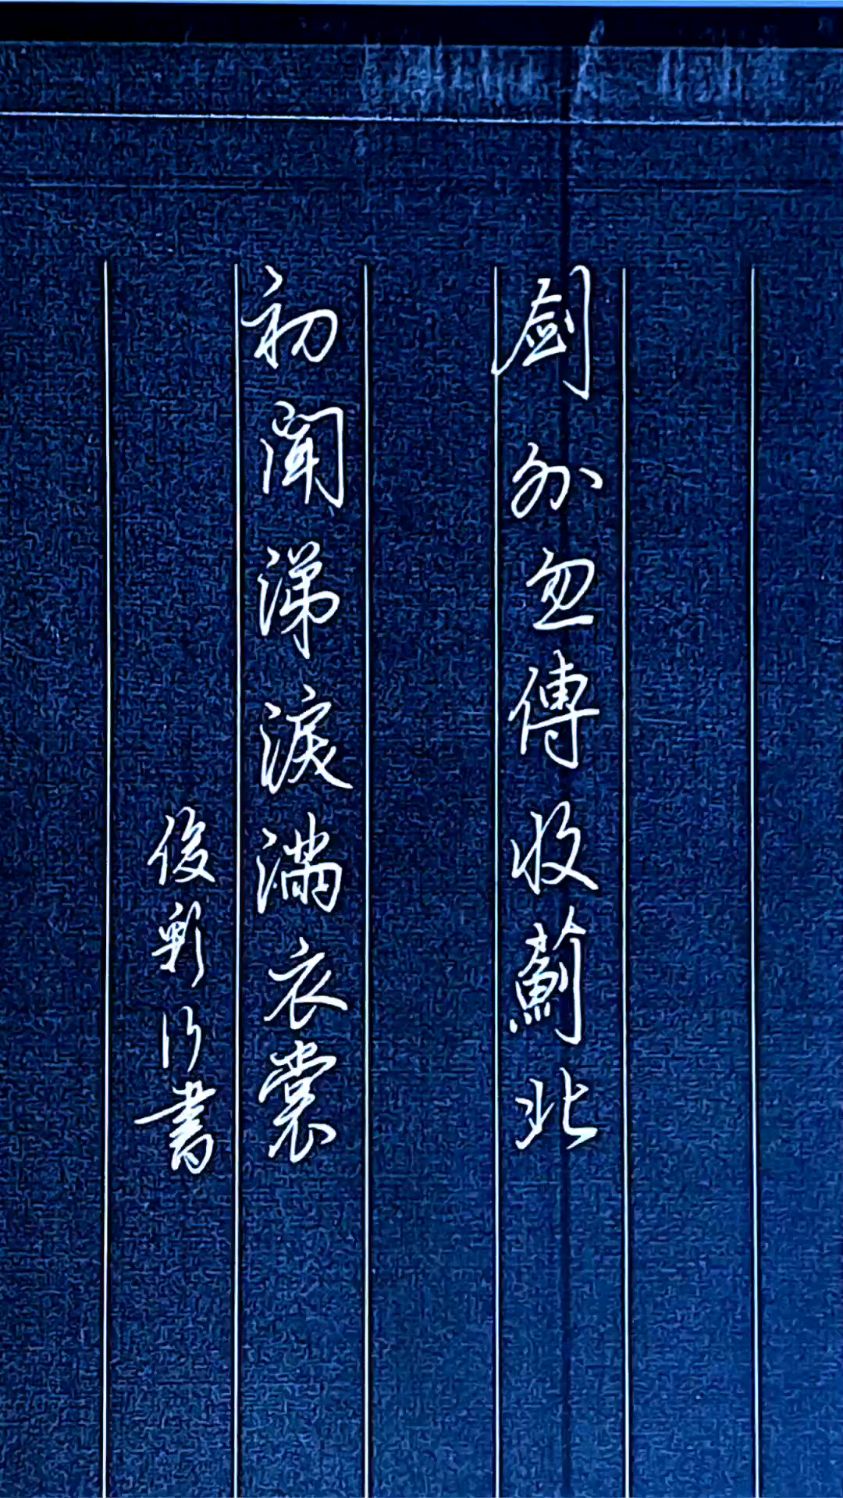 劍外忽傳收薊北
初聞涕淚滿衣裳
俊彩行書